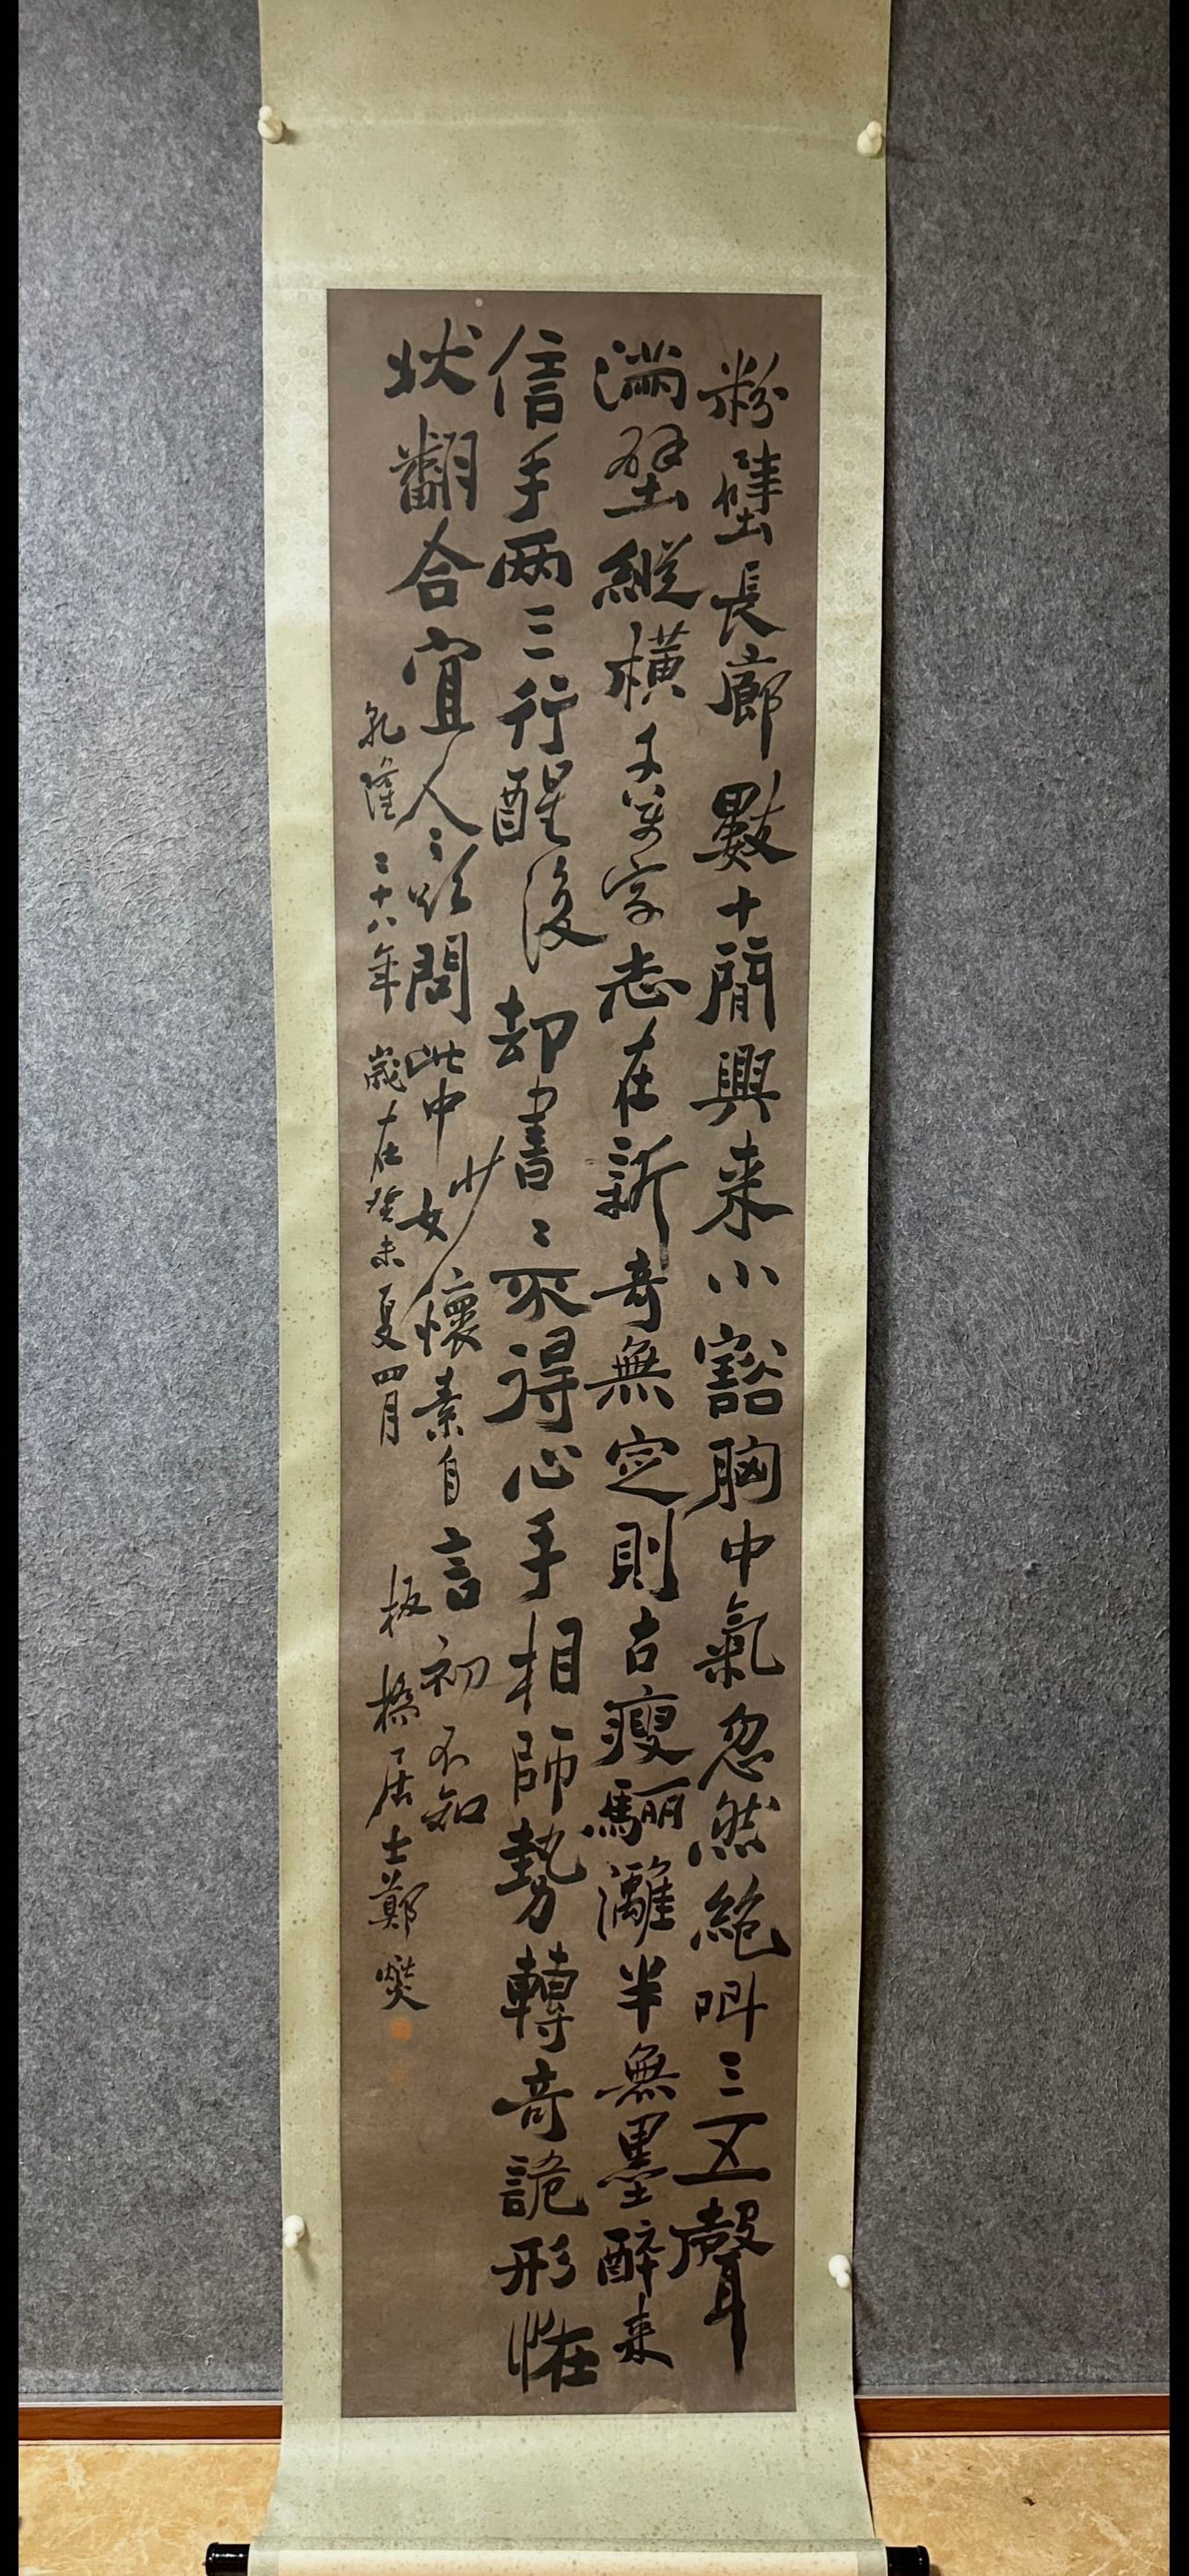 粉壁長廊數十間興来小豁胸中氣忽然絶叫三五聲
滿壁縱橫千萬字志在新奇無定則古瘦驪灕半無墨醉来
信手两三行醒後却書書不得心手相師勢轉奇詭形怪
狀翻合宜人人欲問此中妙懷素自言初不知
乹隆二十八年歲在癸未夏四月板橋居士鄭燮